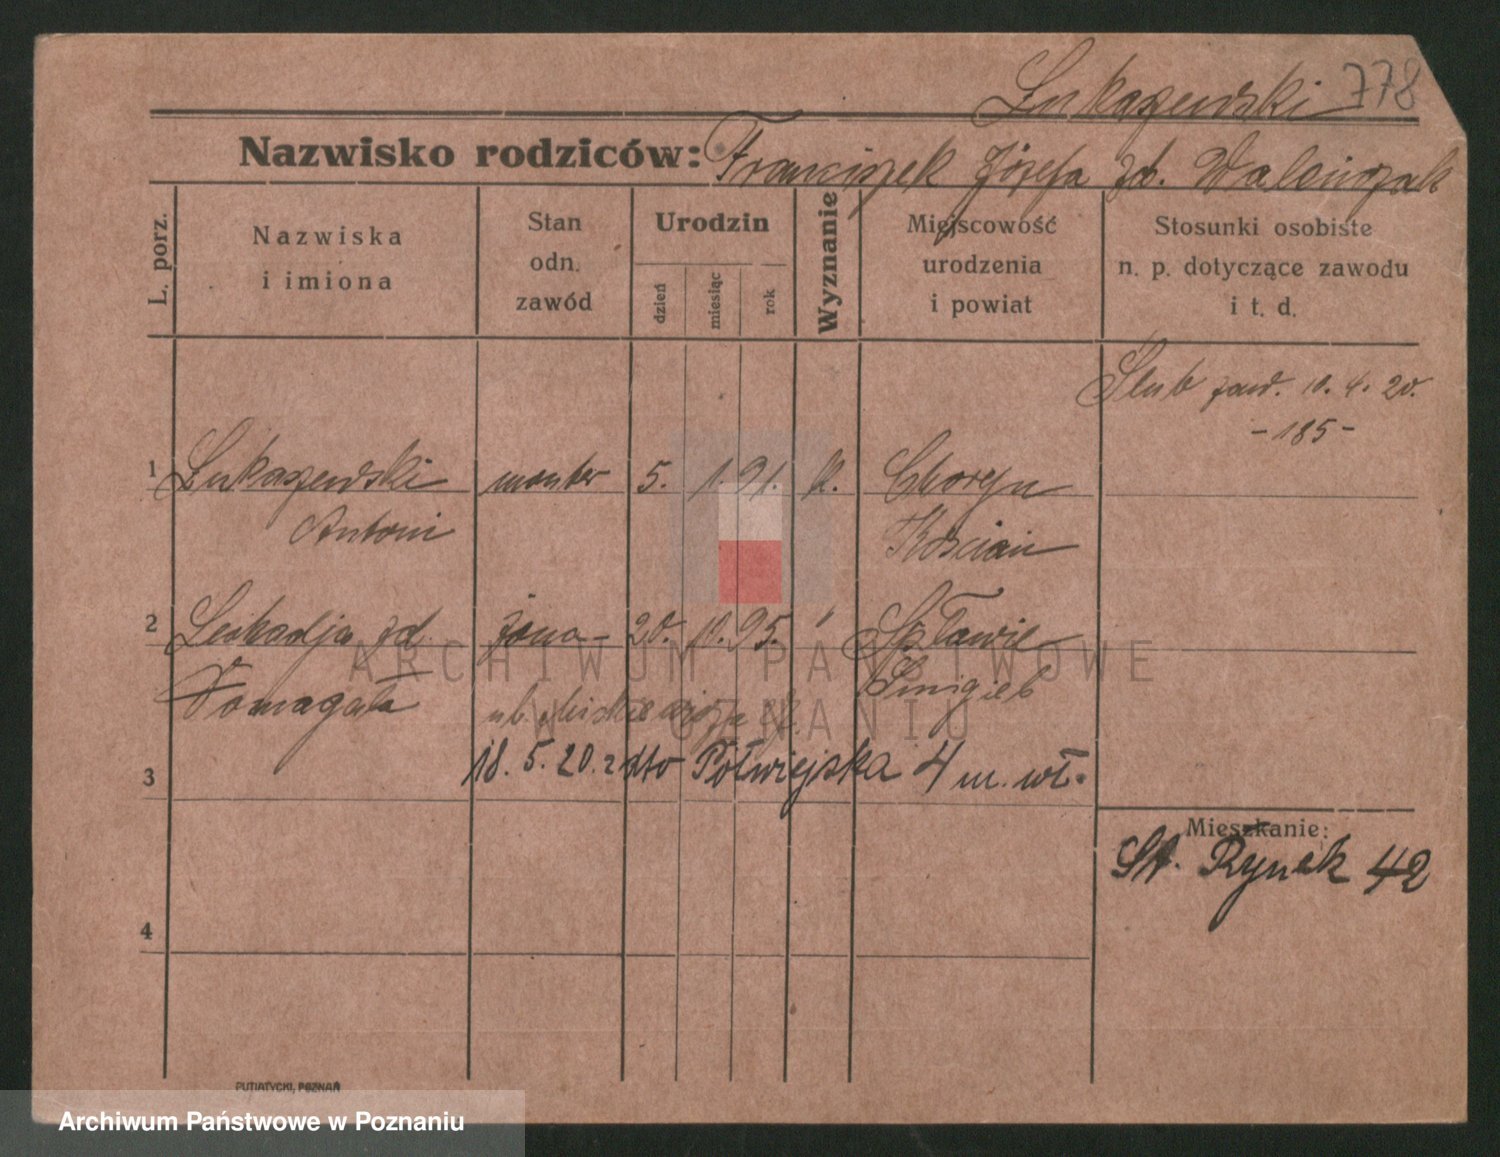 Łukaszewski 778
Nazwisko rodziców: Franciszek Józefa zd. Walenczak
L. porz.
Nazwiska
i imiona
Stan
odn.
zawód
Urodzin
dzień
miesiąc
rok
Wyznanie
Miejscowość
urodzenia
i powiat
Stosunki osobiste
n. p. dotyczące zawodu
i t. d.
Ślub zawd. 10. 4. 20.
-185-
1 Łukaszewski monter 5. 1. 91. k. Choryn
Antoni Kościan
2 Leokadja zd. żona 20. 10. 95. " Spławie
Domagała Śmigiel
3 18. 5. 20. z dto Półwiejska 4 m. wł.
Mieszkanie:
St. Rynek 42
4
PUTIATYCKI, POZNAŃ
ARCHIWUM PAŃSTWOWE
W POZNANIU
Archiwum Państwowe w Poznaniu